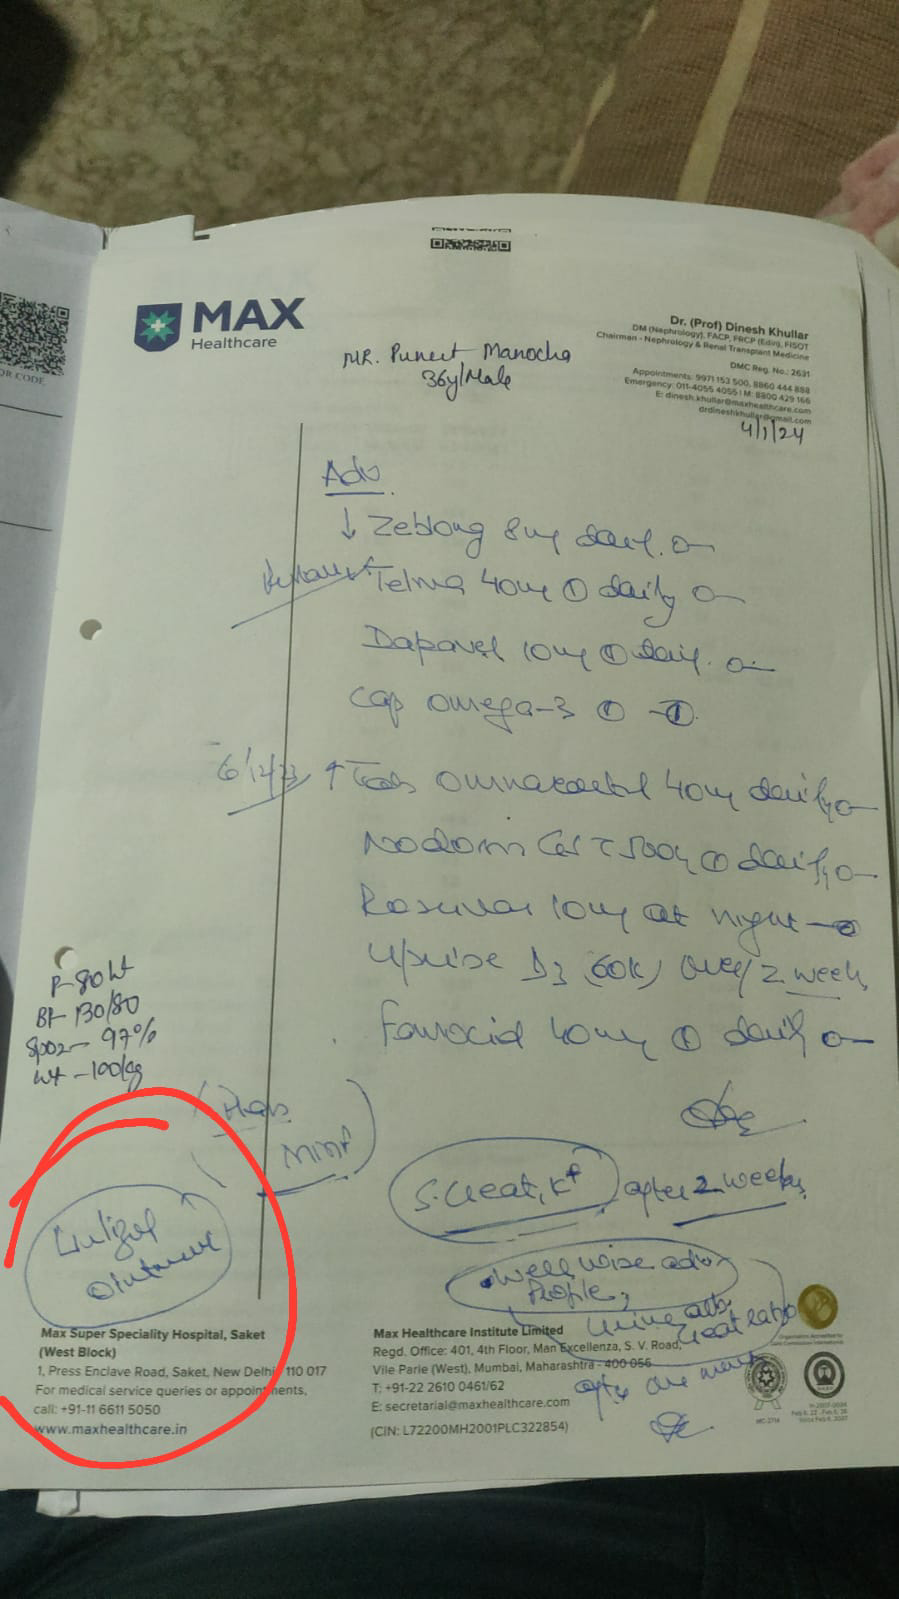 OR CODE
MAX
Healthcare
Dr. (Prof) Dinesh Khullar
DM (Nephrology), FACP, FRCP (Edin), FISOT
Chairman - Nephrology & Renal Transplant Medicine
DMC Reg. No.: 2631
Appointments: 9971 153 500, 8860 444 888
Emergency: 011-4055 4055 | M: 8800 429 166
E: dinesh.khullar@maxhealthcare.com
drdineshkhullar@gmail.com
MR. Puneet Manocha
36y/Male
4/1/24
Adv
↓ 8mg daily
Telma 40mg ① daily
10mg ① daily
Cap omega-3 ① - ①
6/12/23 ↑ Tab 40mg daily
500 ① daily
10mg at night
Uprise D3 (60K) every 2 week
40mg ① daily
P-80
BP- 130/80
SpO2- 97%
Wt -100kg
S. Creat, K+ after 2 weeks
Ointment
Well wise adv
Profile,
Urine alb
Creat ratio
after one month
Max Super Speciality Hospital, Saket
(West Block)
1, Press Enclave Road, Saket, New Delhi 110 017
For medical service queries or appointments,
call: +91-11 6611 5050
www.maxhealthcare.in
Max Healthcare Institute Limited
Regd. Office: 401, 4th Floor, Man Excellenza, S. V. Road,
Vile Parle (West), Mumbai, Maharashtra - 400 056
T: +91-22 2610 0461/62
E: secretarial@maxhealthcare.com
(CIN: L72200MH2001PLC322854)